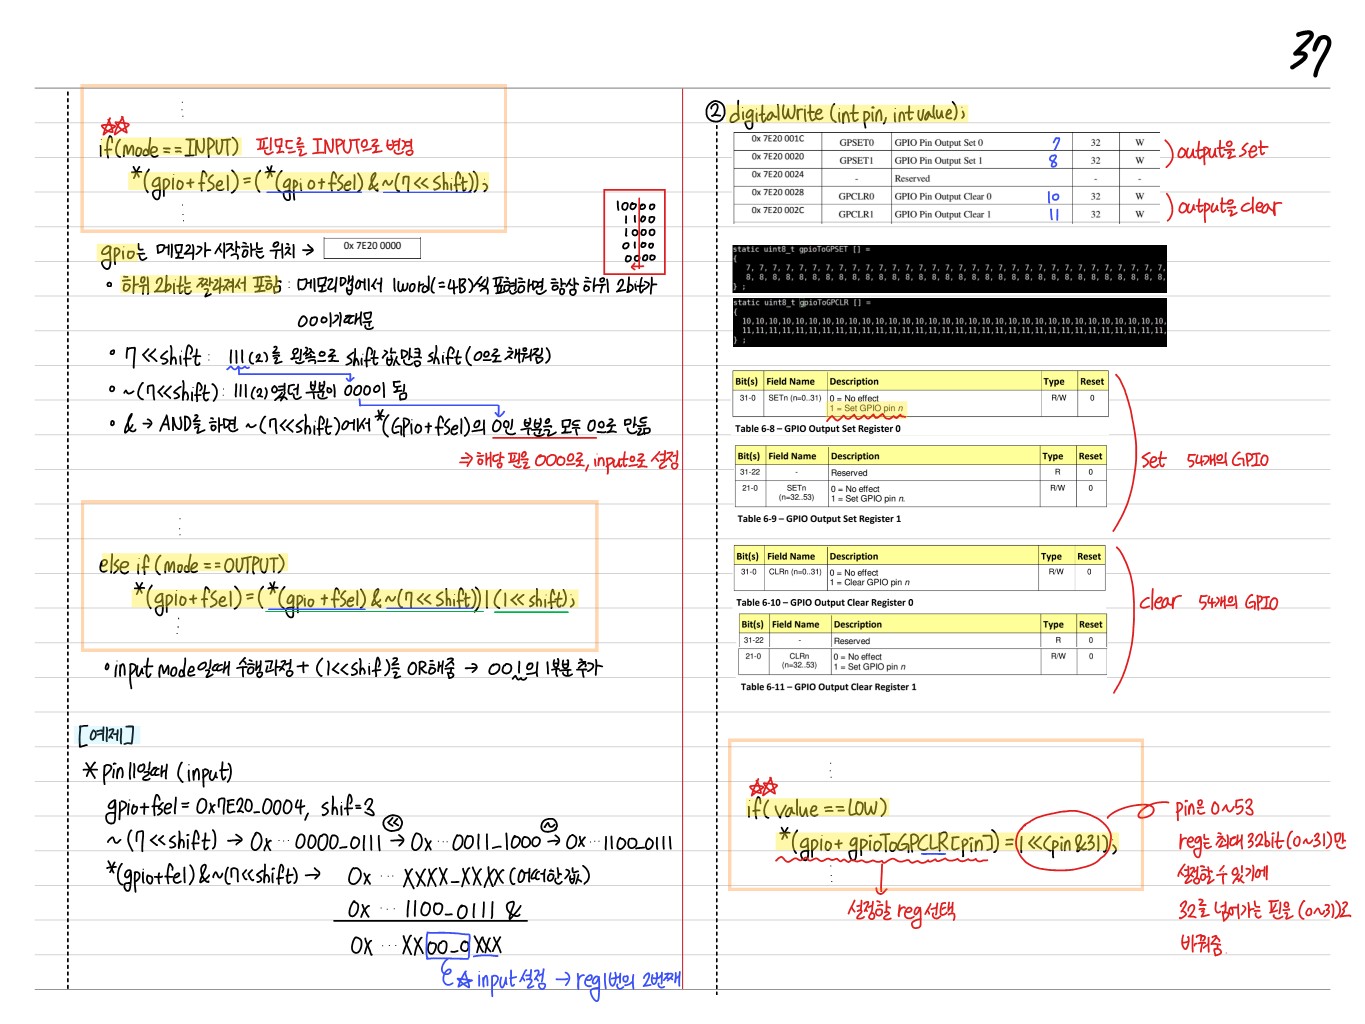 37
if(mode==INPUT) 핀모드를 INPUT으로 변경
*(gpio+fSel)=(*(gpio+fSel)&~(7<<shift));
10000
1100
1000
0100
0000
gpio는 메모리가 시작하는 위치 → 0x 7E20 0000
• 하위 2bit는 잘라져서 포함 : 메모리맵에서 1word(=4B)씩 표현하면 항상 하위 2bit가
00이기때문
• 7<<shift : 111(2)를 왼쪽으로 shift 값만큼 shift (0으로 채워짐)
• ~(7<<shift) : 111(2)였던 부분이 000이 됨
• & → AND를 하면 ~(7<<shift)에서 *(GPio+fSel)의 0인 부분을 모두 0으로 만듦
⇒ 해당 핀을 000으로, input으로 설정
else if (mode==OUTPUT)
*(gpio+fSel)=(*(gpio+fSel)&~(7<<shift))|(1<<shift);
• input mode일때 수행과정 + (1<<shif)를 OR해줌 → 001의 1부분 추가
[예제]
* pin 11일때 (input)
gpio+fsel = 0x7E20_0004, shif=3
<< ~
~(7<<shift) → 0x ··· 0000_0111 → 0x ··· 0011_1000 → 0x ··· 1100_0111
*(gpio+fel)&~(7<<shift) → 0x ··· XXXX_XXXX (어떠한값)
0x ··· 1100_0111 &
0x ··· XX00_0XXX
☆ input 설정 → reg1번의 2번째
② digitalWrite (int pin, int value);
0x 7E20 001C GPSET0 GPIO Pin Output Set 0 7 32 W
0x 7E20 0020 GPSET1 GPIO Pin Output Set 1 8 32 W
output을 set
0x 7E20 0024 - Reserved - -
0x 7E20 0028 GPCLR0 GPIO Pin Output Clear 0 10 32 W
0x 7E20 002C GPCLR1 GPIO Pin Output Clear 1 11 32 W
output을 clear
static uint8_t gpioToGPSET [] =
{
7, 7, 7, 7, 7, 7, 7, 7, 7, 7, 7, 7, 7, 7, 7, 7, 7, 7, 7, 7, 7, 7, 7, 7, 7, 7, 7, 7, 7, 7, 7, 7,
8, 8, 8, 8, 8, 8, 8, 8, 8, 8, 8, 8, 8, 8, 8, 8, 8, 8, 8, 8, 8, 8, 8, 8, 8, 8, 8, 8, 8, 8, 8, 8,
} ;
static uint8_t gpioToGPCLR [] =
{
10,10,10,10,10,10,10,10,10,10,10,10,10,10,10,10,10,10,10,10,10,10,10,10,10,10,10,10,10,10,10,10,
11,11,11,11,11,11,11,11,11,11,11,11,11,11,11,11,11,11,11,11,11,11,11,11,11,11,11,11,11,11,11,11,
} ;
Bit(s) Field Name Description Type Reset
31-0 SETn (n=0..31) 0 = No effect R/W 0
1 = Set GPIO pin n
Table 6-8 – GPIO Output Set Register 0
Bit(s) Field Name Description Type Reset
31-22 - Reserved R 0
21-0 SETn 0 = No effect R/W 0
(n=32..53) 1 = Set GPIO pin n.
Table 6-9 – GPIO Output Set Register 1
set 54개의 GPIO
Bit(s) Field Name Description Type Reset
31-0 CLRn (n=0..31) 0 = No effect R/W 0
1 = Clear GPIO pin n
Table 6-10 – GPIO Output Clear Register 0
Bit(s) Field Name Description Type Reset
31-22 - Reserved R 0
21-0 CLRn 0 = No effect R/W 0
(n=32..53) 1 = Set GPIO pin n
Table 6-11 – GPIO Output Clear Register 1
clear 54개의 GPIO
if(value==LOW)
*(gpio+gpioToGPCLR[pin])=1<<(pin&31);
설정할 reg 선택
pin은 0~53
reg는 최대 32bit(0~31)만
설정할 수 있기에
32를 넘어가는 핀을 (0~31)로
바꿔줌.